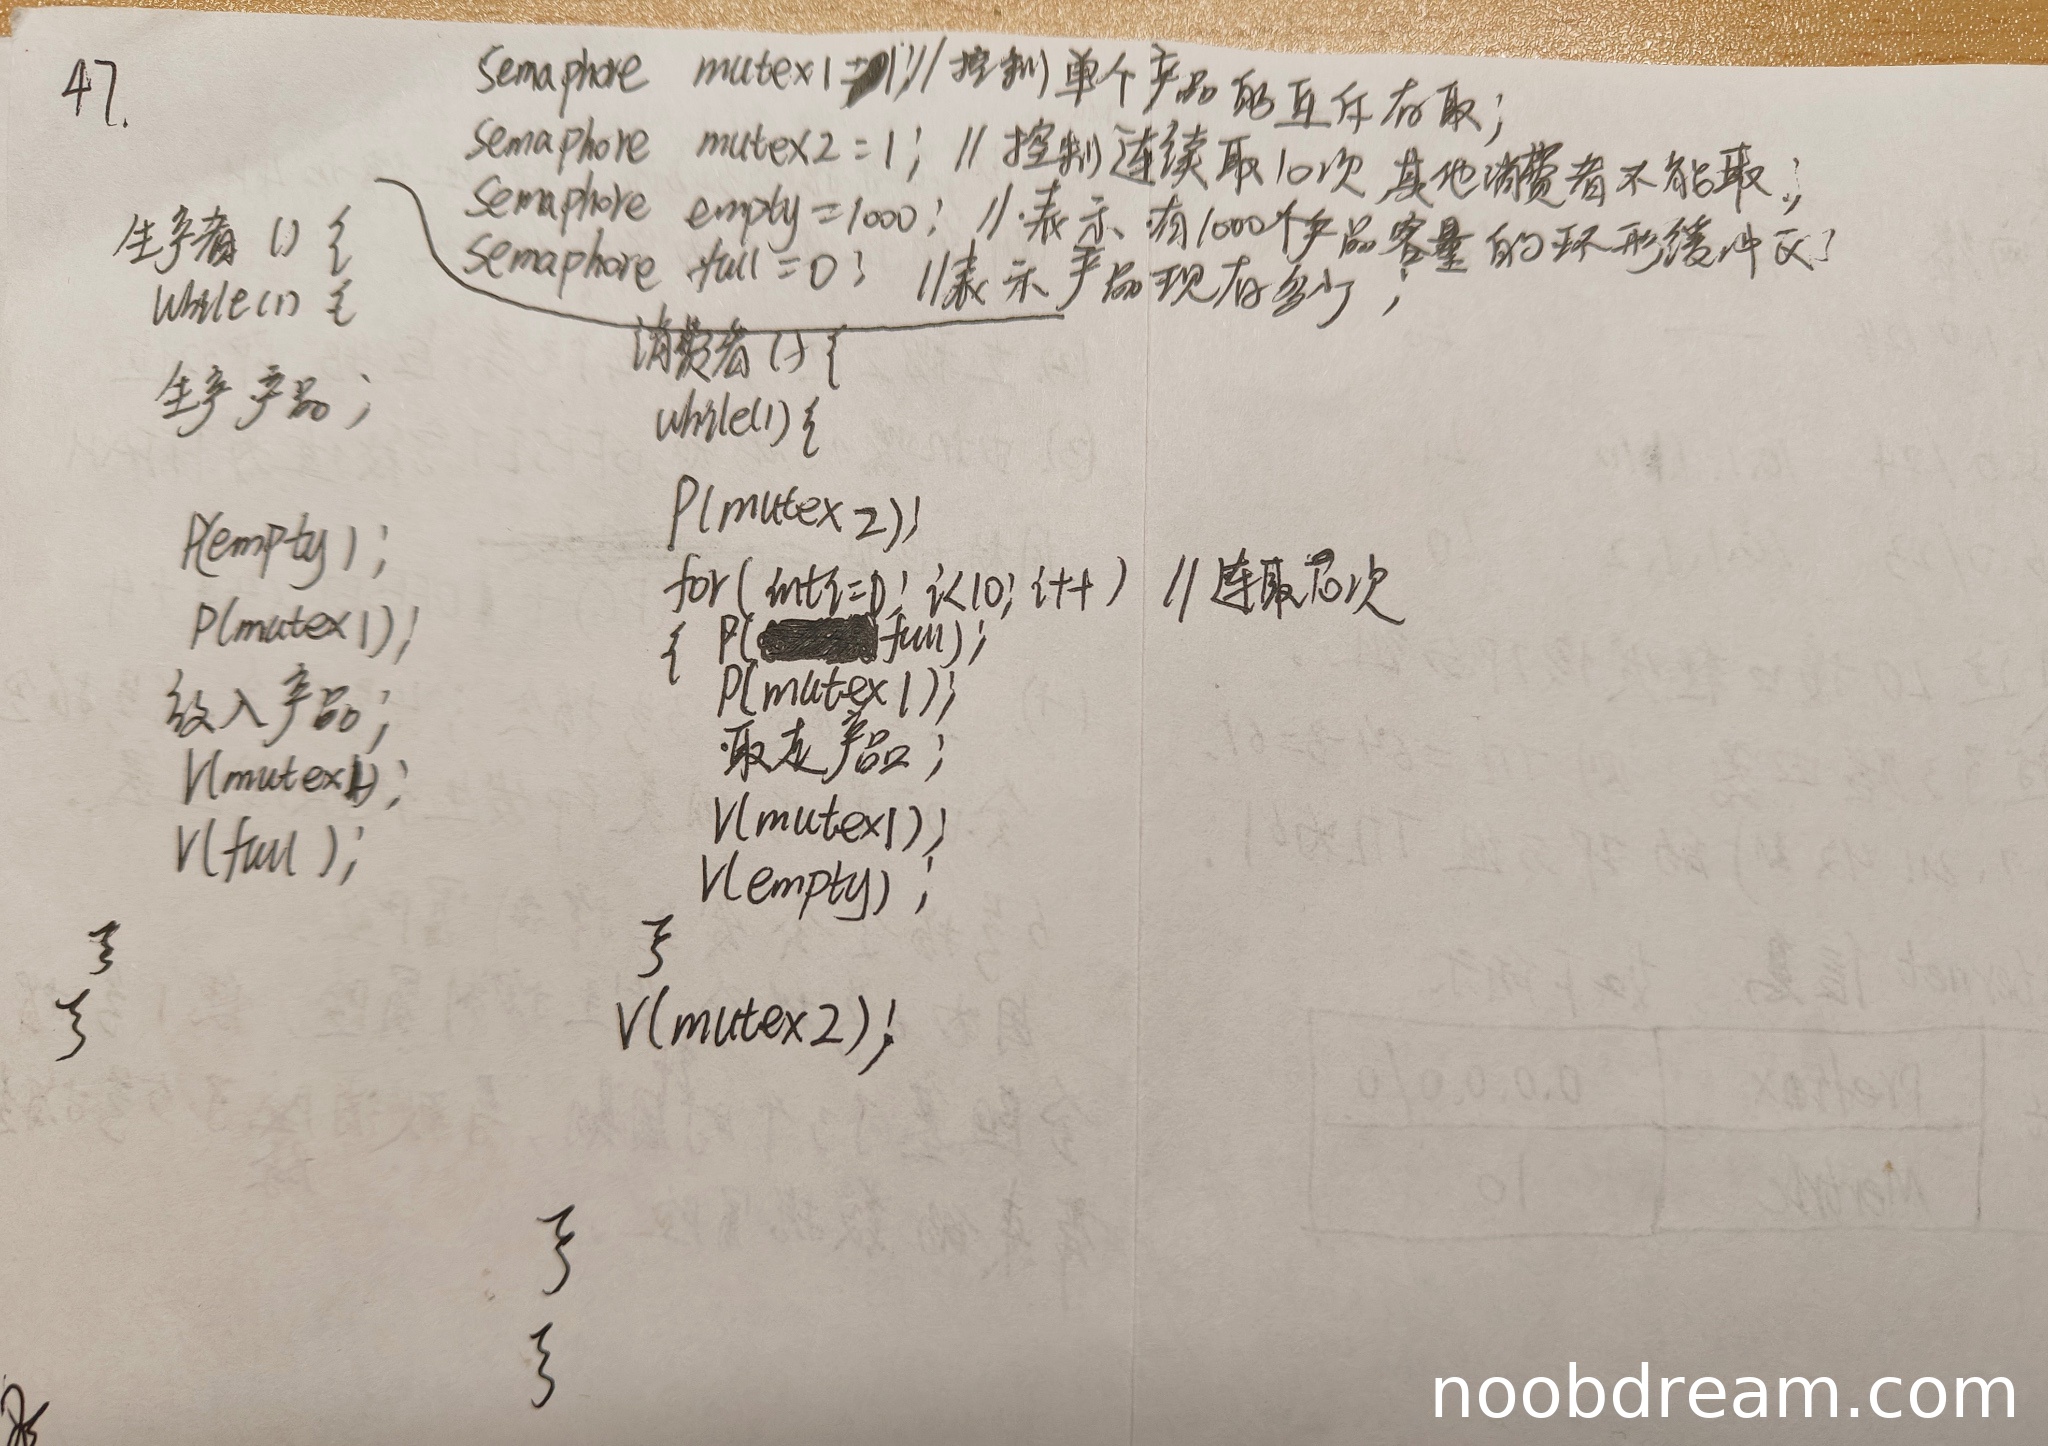 47.
Semaphore mutex1=1; //控制单个产品的互斥存取;
Semaphore mutex2=1; //控制连续取10次其他消费者不能取;
Semaphore empty=1000; //表示有1000个产品容量的环形缓冲区;
Semaphore full=0; //表示产品现有多少;
生产者() {
while(1) {
生产产品;
P(empty);
P(mutex1);
放入产品;
V(mutex1);
V(full);
}
}
消费者() {
while(1) {
P(mutex2);
for(int i=0; i<10; i++) //连取10次
{ P(full);
P(mutex1);
取走产品;
V(mutex1);
V(empty);
}
V(mutex2);
}
}
noobdream.com